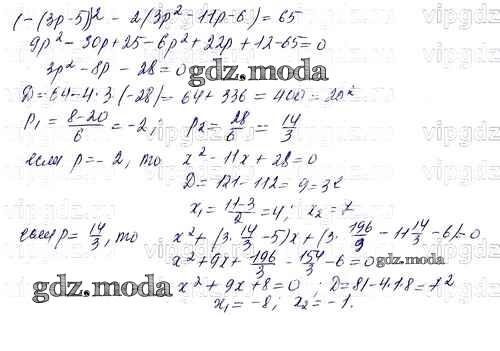 (-(3p-5))² - 2(3p² - 11p - 6) = 65
9p² - 30p + 25 - 6p² + 22p + 12 - 65 = 0
3p² - 8p - 28 = 0
gdz.moda
D = 64 - 4·3·(-28) = 64 + 336 = 400 = 20²
p₁ = (8-20)/6 = -2; p₂ = 28/6 = 14/3
если p = -2, то x² - 11x + 28 = 0
D = 121 - 112 = 9 = 3²
x₁ = (11-3)/2 = 4; x₂ = 7
если p = 14/3, то x² + (3·14/3 - 5)x + (3·196/9 - 11·14/3 - 6) = 0
x² + 9x + 196/3 - 154/3 - 6 = 0
gdz.moda
x² + 9x + 8 = 0; D = 81 - 4·1·8 = 7²
gdz.moda
x₁ = -8; x₂ = -1.